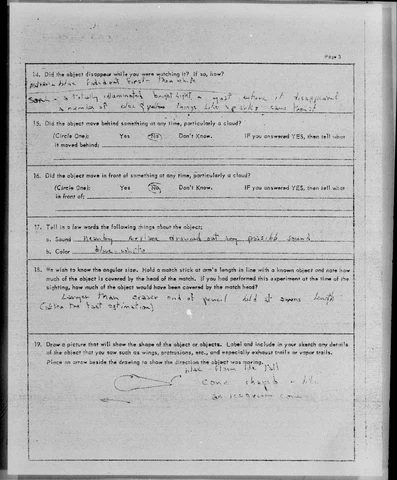 Page 3
14. Did the object disappear while you were watching it? If so, how?
first - then white
a totally illuminated bright light - it disappeared
a number of
15. Did the object move behind something at any time, particularly a cloud?
(Circle One): Yes No Don't Know. IF you answered YES, then tell what
it moved behind:
16. Did the object move in front of something at any time, particularly a cloud?
(Circle One): Yes No Don't Know. IF you answered YES, then tell what
in front of:
17. Tell in a few words the following things about the object:
a. Sound nearby airline drowned out any possible sound
b. Color blue-white
18. We wish to know the angular size. Hold a match stick at arm's length in line with a known object and note how
much of the object is covered by the head of the match. If you had performed this experiment at the time of the
sighting, how much of the object would have been covered by the match head?
Larger than eraser end of pencil held at arms length
(is the best estimation)
19. Draw a picture that will show the shape of the object or objects. Label and include in your sketch any details
of the object that you saw such as wings, protrusions, etc., and especially exhaust trails or vapor trails.
Place an arrow beside the drawing to show the direction the object was moving.
blue - flame like tail
Cone shaped - like
an icecream cone